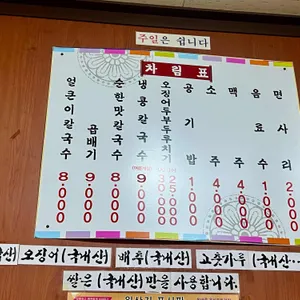 주일은 쉽니다
차림표
얼큰이칼국수 8,000
곱배기 9,000
순한맛칼국수 8,000
냉콩칼국수 9,000
오징어두부두루치기
공기밥 1,000
소주 4,000
맥주 4,000
음료수 1,000
면사리 2,000
오징어(국내산) 배추(국내산) 고춧가루(국내산
쌀은(국내산)만을 사용합니다.